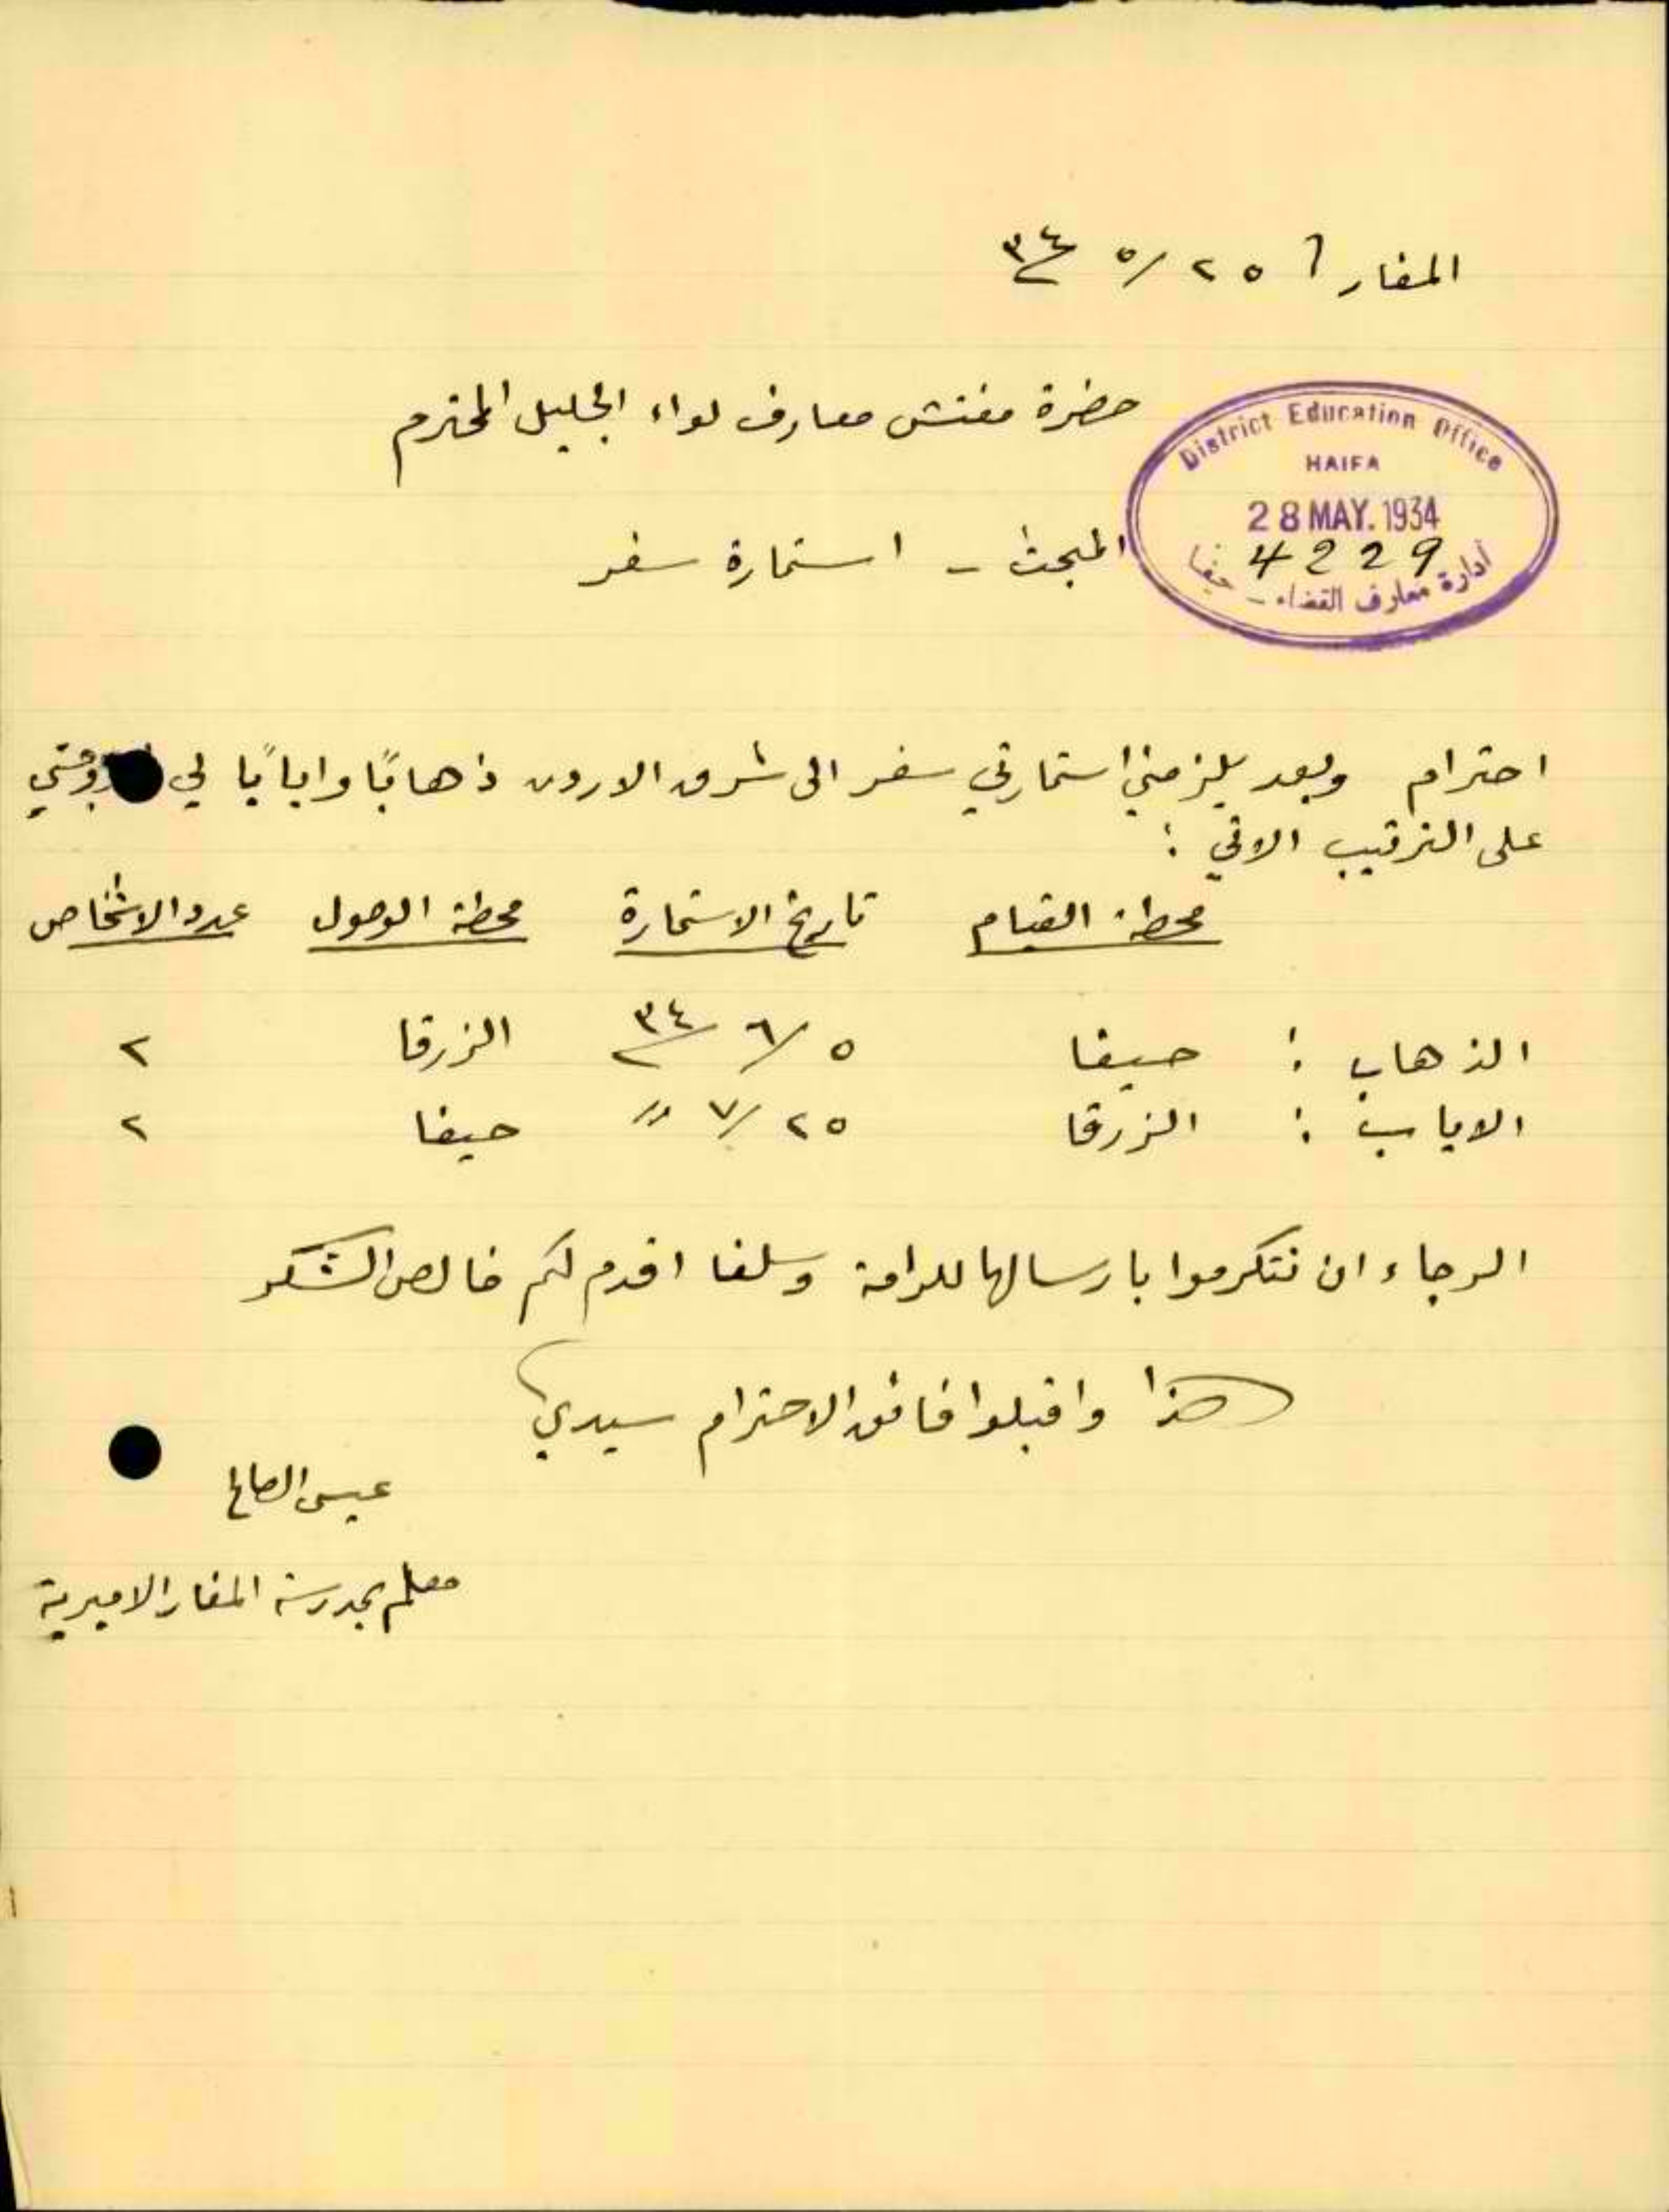 المغار ٢٥/٥ ٣٤
حضرة مفتش معارف لواء الجليل المحترم
District Education Office
HAIFA
28 MAY. 1934
4229
أدارة معارف القضاء - حيفا
المبحث - استمارة سفر
احترام وبعد يلزمني استمارتي سفر الى شرق الاردن ذهابًا وايابًا لي وزوجتي
على الترتيب الاتي :
محطة القيام تاريخ الاستمارة محطة الوصول عدد الاشخاص
الذهاب : حيفا ٥/٦ ٣٤ الزرقا ٢
الاياب : الزرقا ٢٥/٧ " حيفا ٢
الرجاء ان تتكرموا بارسالها للرامة وسلفا اقدم لكم خالص الشكر
هذا واقبلوا فائق الاحترام سيدي
عيسى الصالح
معلم بمدرسة المغار الاميرية